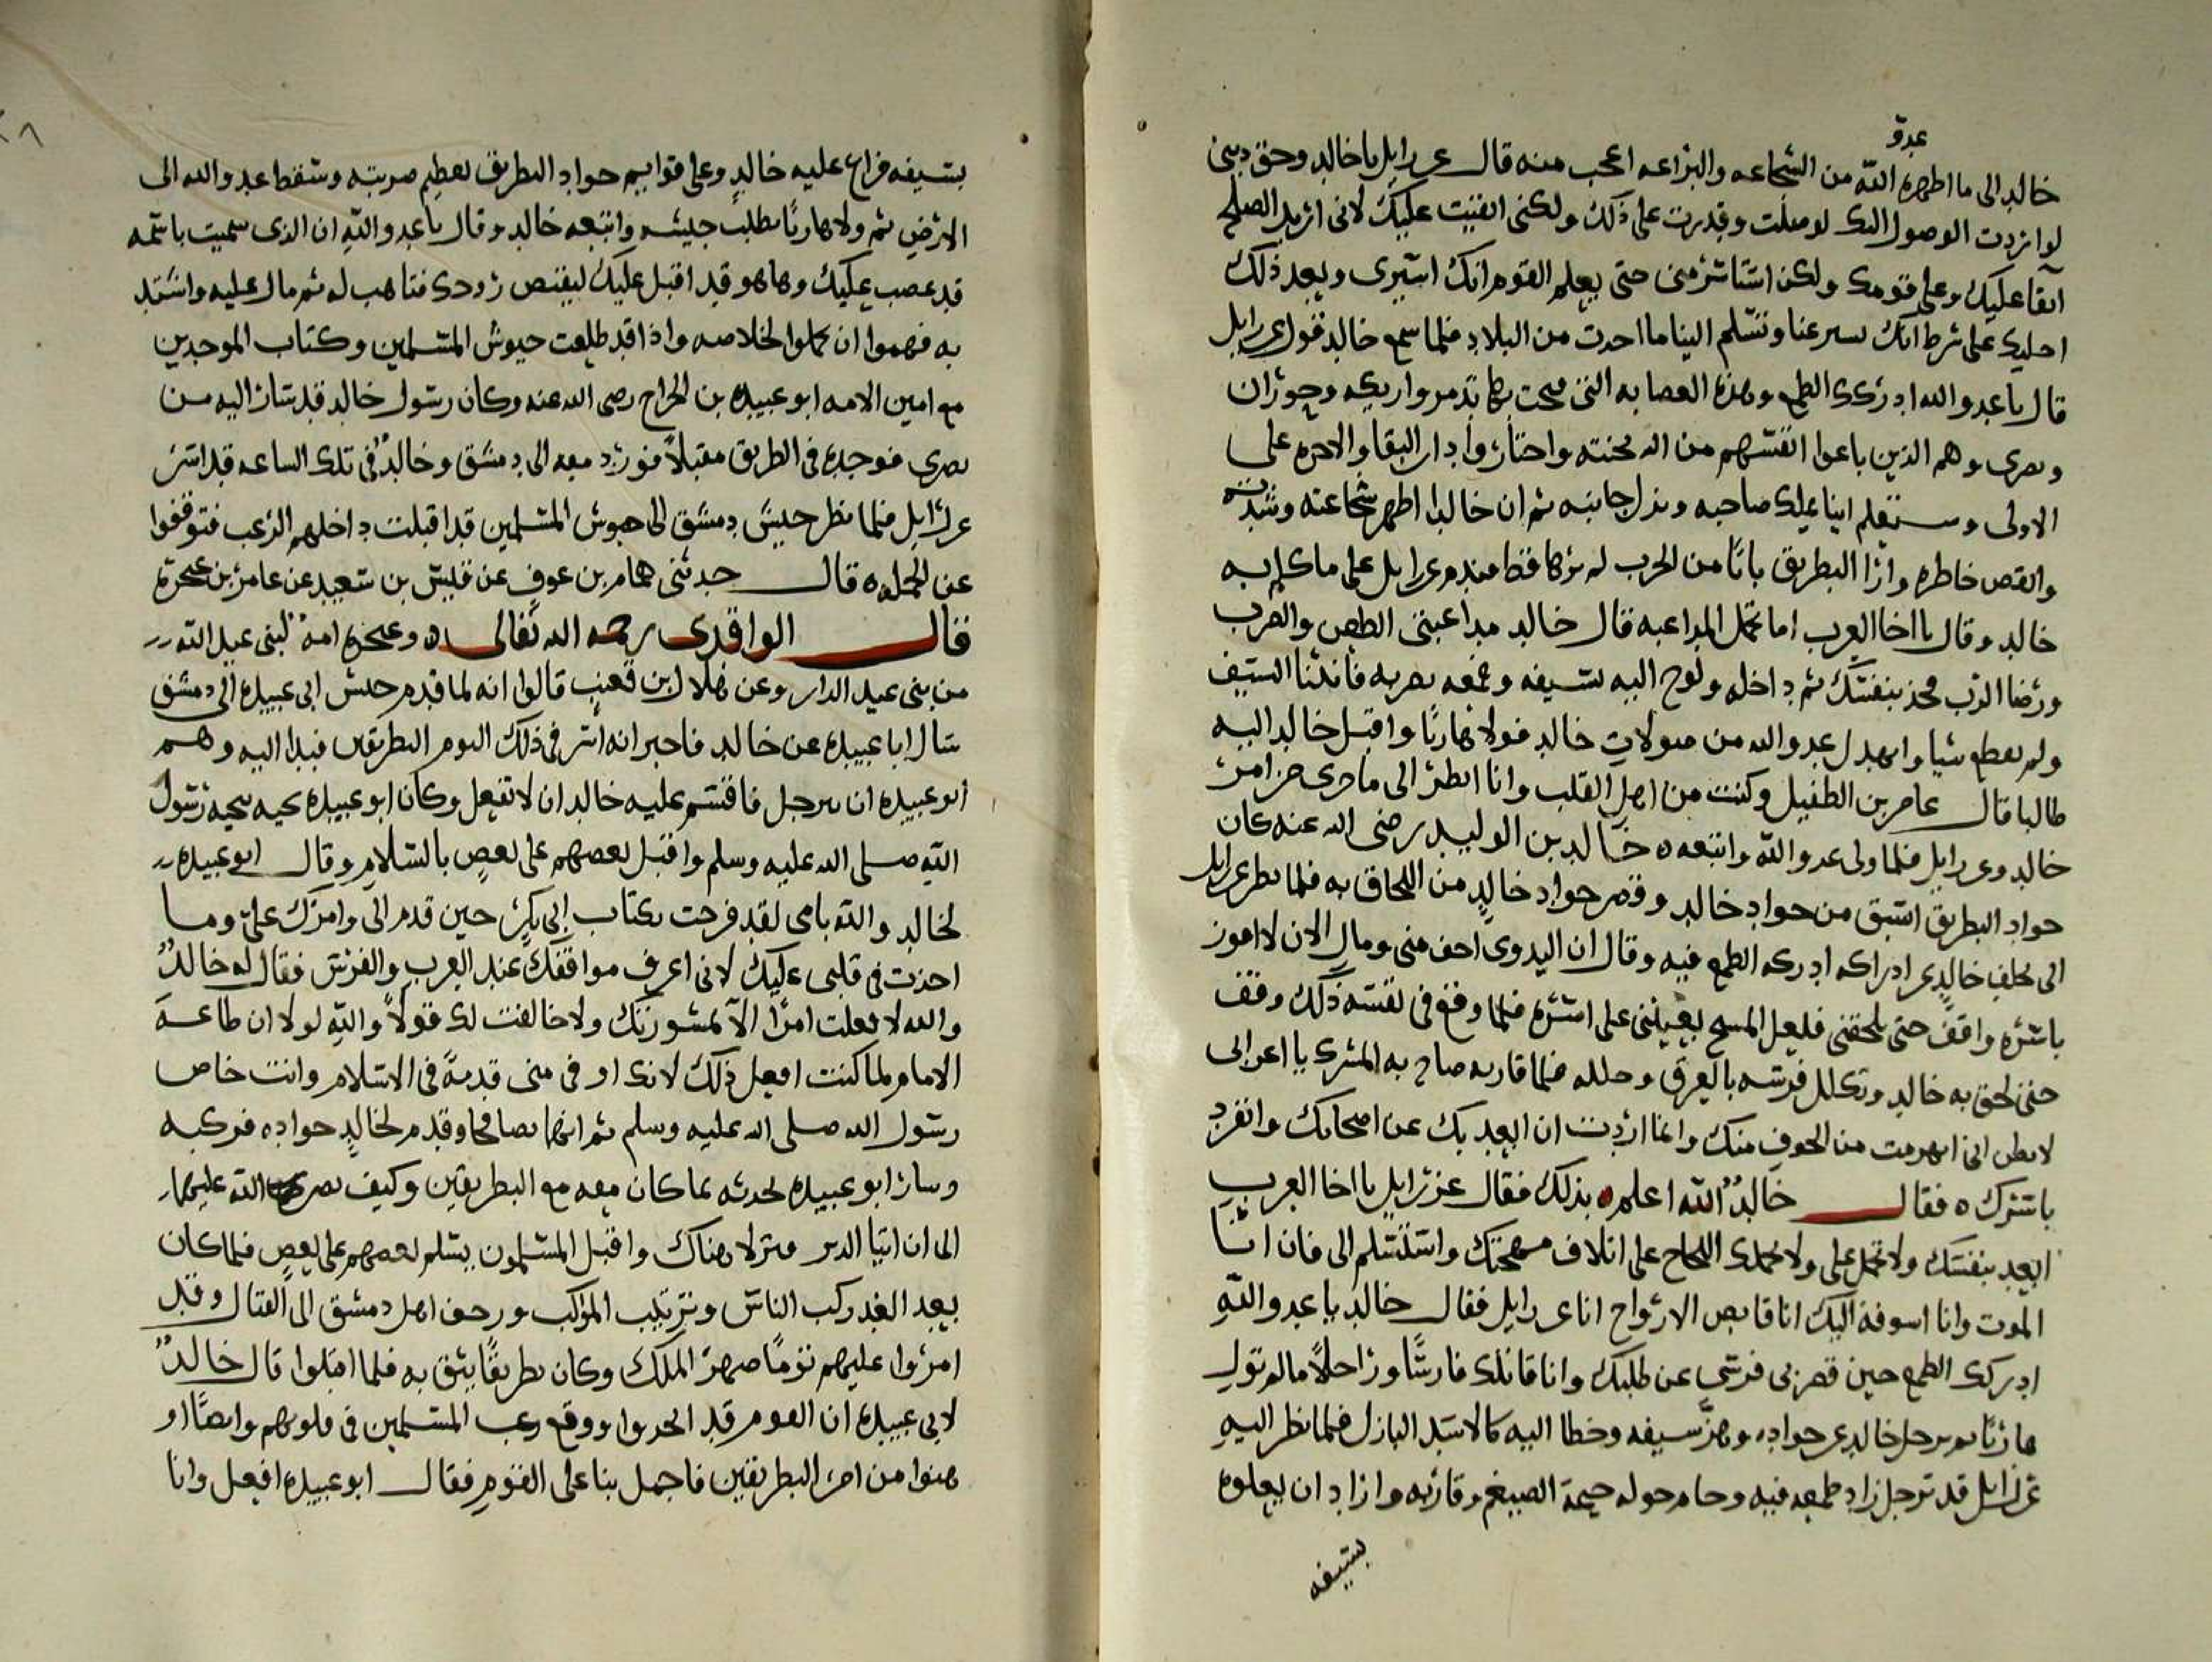 عدو
خالد الى ما اظهره الله من الشجاعه والبراعه اعجب منه قال عزرايل يا خالد وحق ديني
لو اردت الوصول اليك لوصلت وقدرت على ذلك ولكني ابقيت عليك لاني اريد الصلح
ابقا عليك وعلى قومك ولكن استاسر مني حتى يعلم القوم انك اسيري وبعد ذلك
اخليك على شرط انك تسير عنا وتسلم الينا ما اخدت من البلاد فلما سمع خالد قول عزرايل
قال يا عدو الله ادركك الطمع وهذه العصابه التي فتحت بها تدمر واركه وحوران
وبصرى وهم الذين باعوا انفسهم من الله بجنته واختاروا دار البقا والاخره على
الاولى وستعلم اينا يملك صاحبه ويذل جانبه ثم ان خالدا اظهر شجاعته وشدته
خاطره وارا البطريق بابا من الحرب لم يرها قط فندم عزرايل على ما كلم به
خالد وقال يا اخا العرب اما تحمل المداعبه قال خالد مداعبتي الطعن والضرب
ورضا الرب فخذ بنفسك ثم داخله ولوح اليه بسيفه وعمه بضربه السيف
ولم يقطع شيا عدو الله من صولات خالد فولا هاربا واقبل خالد اليه
طالبا قال عامر بن الطفيل وكنت من اهل القلب وانا انظر الى ما جرى من امر
خالد وعزرايل فلما ولى عدو الله واتبعه خالد بن الوليد رضى الله عنه كان
جواد البطريق اسبق من جواد خالد وقصر جواد خالد من اللحاق به فلما نظر عزرايل
الى تخلف خالد عن ادراكه ادركه الطمع فيه وقال ان البدوى اخف مني ومالي الان لا امور
باسره واقف حتى يلحقني فلعل المسيح يعينني على اسره فلما وقع في نفسه ذلك وقف
حتى لحق به خالد وتكلل فرسه بالعرق وجلله فلما قاربه صاح به المشرك يا اعرابى
لا تظن اني انهزمت من الخوف منك وانما اردت ان ابعد بك عن اصحابك وانفرد
باسرك فقال خالد الله اعلم بذلك فقال عزرايل يا اخا العرب
ابعد بنفسك ولا تحمل على ولا يحملك اللجاج على اتلاف مهجتك واستسلم الى فان انا
الموت وانا اسوقه اليك انا قابض الارواح انا عزرايل فقال خالد يا عدو الله
ادركك الطمع حين قصر بي فرسي عن طلبك وانا قاتلك فارسا وراجلا ما لم تول
هاربا ثم ترجل خالد عن جواده وهز سيفه وخطا اليه كالاسد البازل فلما نظر اليه
عزرايل قد ترجل زاد طمعه فيه وحام حوله الضيغم وقاربه واراد ان يعلوه
بسيفه
بسيفه فراغ عليه خالد وعلى قوايم جواد البطريق بعظيم ضربته وسقط عدو الله الى
الارض ثم ولا هاربا يطلب جيشه واتبعه خالد وقال يا عدو الله ان الذى سميت باسمه
قد غضب عليك وها هو قد اقبل عليك ليقتص روحك فتاهب له ثم مال عليه واستبد
به فهموا ان يحملوا لخلاصه واذا قد طلعت جيوش المسلمين وكتاب الموحدين
مع امين الامه ابو عبيده بن الجراح رضى الله عنه وكان رسول خالد قد سار اليه من
بصرى فوجده في الطريق مقبلا فورد معه الى دمشق وخالد في تلك الساعه قد اسر
عزرايل فلما نظر جيش دمشق الى جيوش المسلمين قد اقبلت داخلهم الرعب فتوقفوا
عن الحمله قال حدثني همام بن عوف عن قيس بن سعيد عن عامر بن عجرة
قال الواقدى رحمه الله تعالى وعجره امه لبني عبد الله
من بني عبد الدار وعن هلال ابن قعنب قالوا انه لما قدم جيش ابى عبيده الى دمشق
سال ابا عبيده عن خالد فاخبر انه اسر في ذلك اليوم البطريقين فبدا اليه وهم
ابو عبيده ان يترجل فاقسم عليه خالد ان لا تفعل وكان ابو عبيده يحبه محبة رسول
الله صلى الله عليه وسلم واقبل بعضهم على بعض بالسلام وقال ابو عبيده
لخالد والله يا لقد فرحت بكتاب ابى بكر حين قدم الى وامرك على وما
اخذت في قلبى عليك لاني اعرف مواقفك عند العرب والفرس فقال له خالد
والله لا فعلت امرا الا بمشورتك ولا خالفت لك قولا والله لولا ان طاعة
الامام لما كنت افعل ذلك لانك اوفى منى قدمة في الاسلام وانت خاص
رسول الله صلى الله عليه وسلم ثم انهما تصافحا وقدم لخالد جواده فركبه
وسار ابو عبيده يحدثه بما كان معه مع البطريقين وكيف نصره الله عليهما
الى ان اتيا الدير ونزلا هناك واقبل المسلمون يسلم بعضهم على بعض فلما كان
بعد الغد ركب الناس وترتيب الموكب وزحف اهل دمشق الى القتال وقد
امروا عليهم توما صهر الملك وكان بطريقا يثق به فلما اقبلوا قال خالد
لابى عبيده ان القوم قد انخدلوا ووقع رعب المسلمين في قلوبهم وايضا
وهنوا من اسر البطريقين فاحمل بنا على القوم فقال ابو عبيده افعل وانا